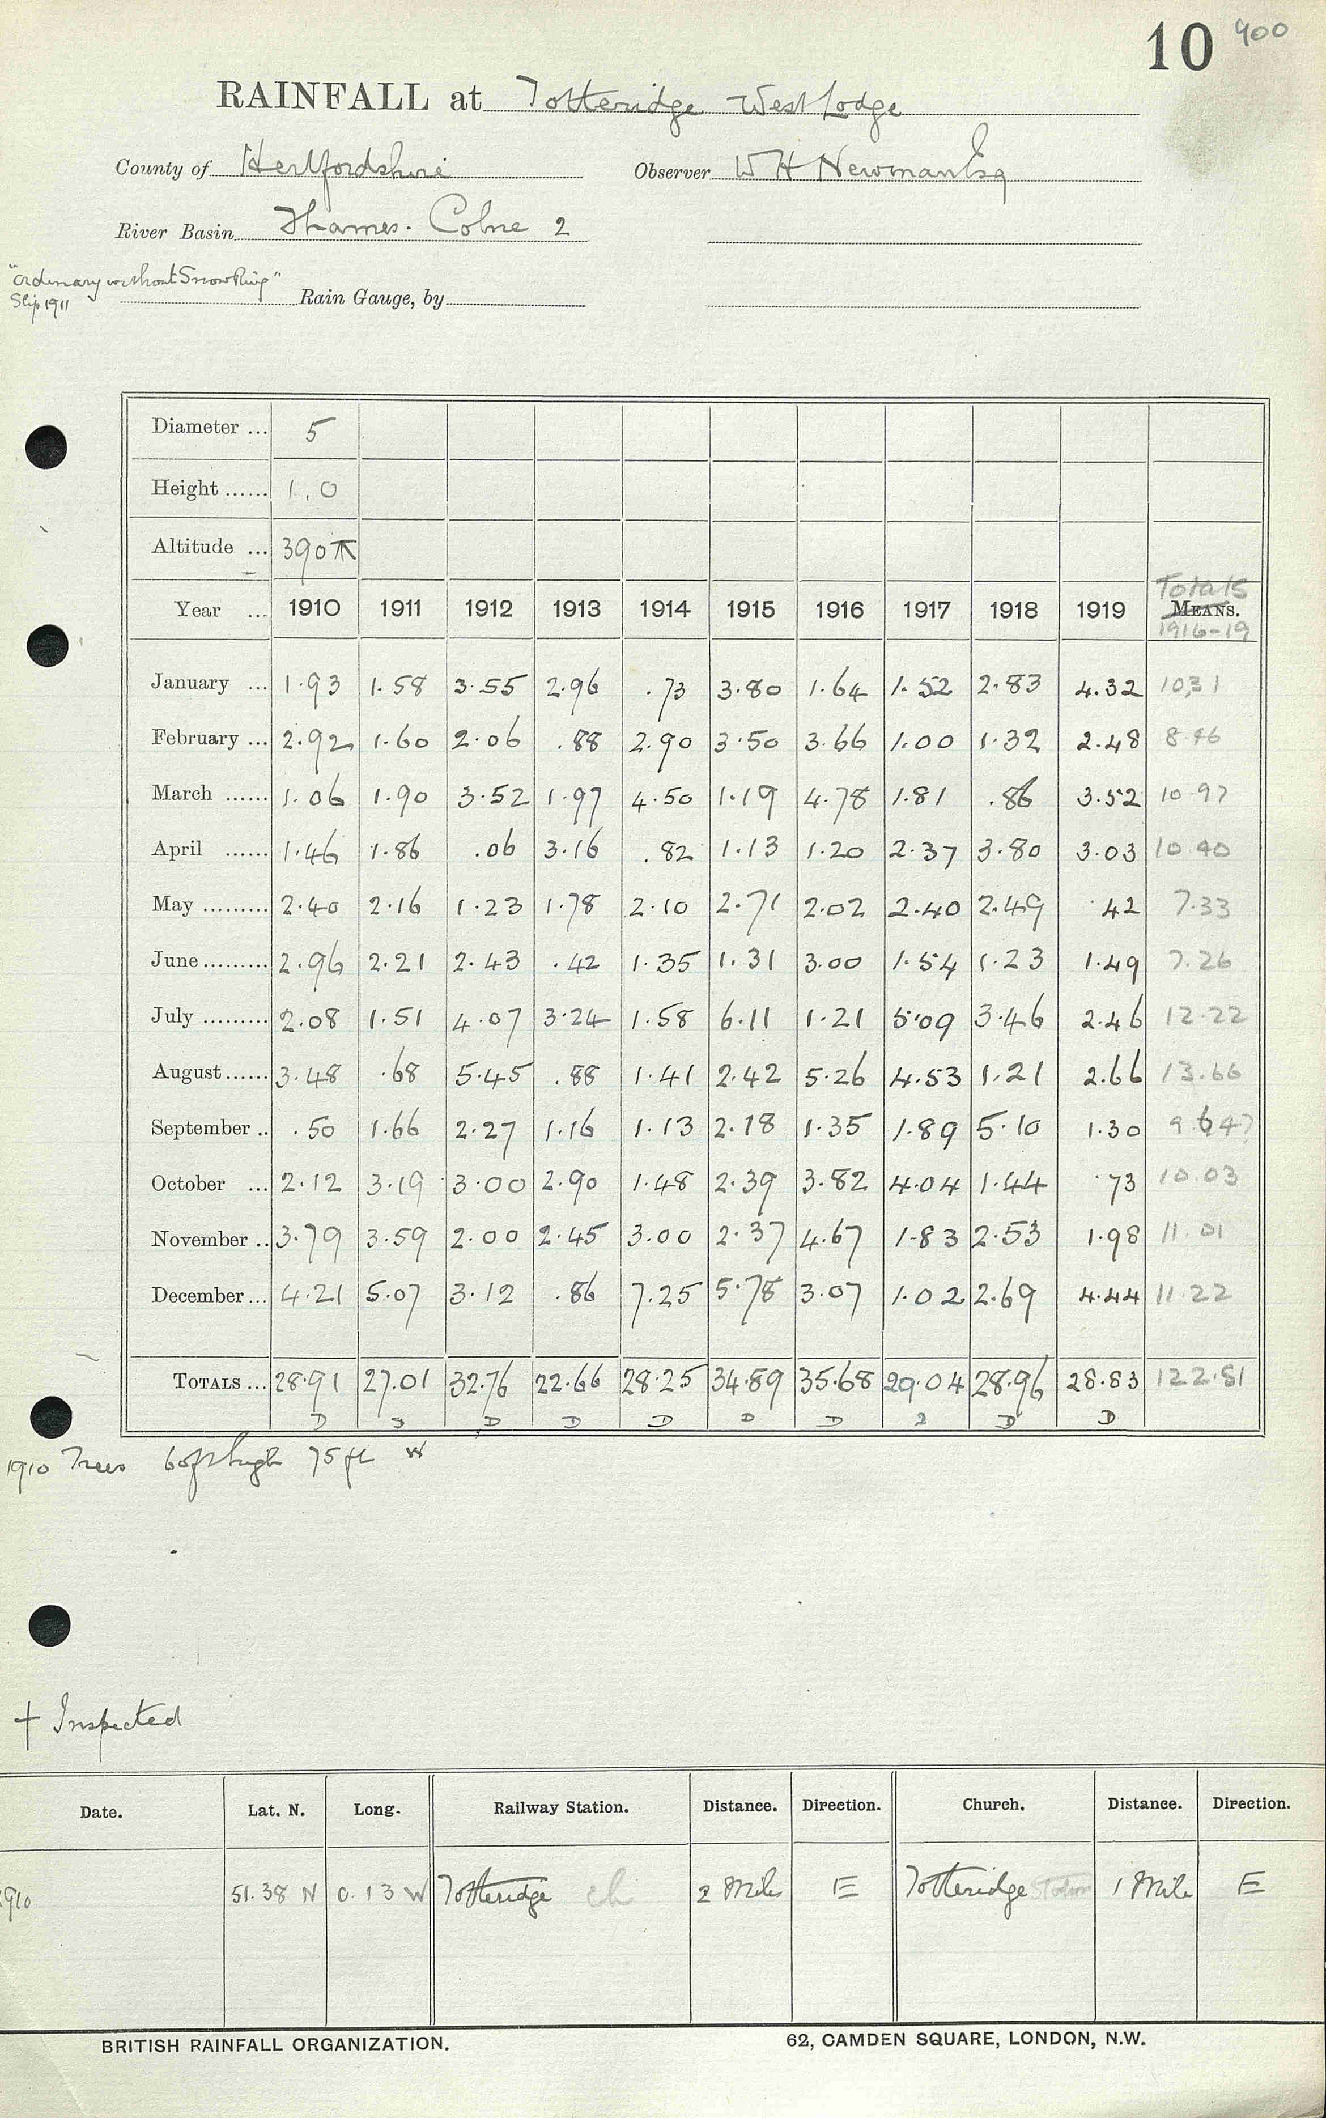 10 900
RAINFALL at Totteridge West Lodge
County of Hertfordshire Observer W H Newman Esq
River Basin Thames. Colne 2
"ordinary without Snow Ring"
Slip 1911
Rain Gauge, by
Diameter ... 5
Height ...... 1.0
Altitude ... 390
Year ... 1910 1911 1912 1913 1914 1915 1916 1917 1918 1919 Totals MEANS. 1916-19
January ... 1.93 1.58 3.55 2.96 .73 3.80 1.64 1.52 2.83 4.32 10.31
February ... 2.92 1.60 2.06 .88 2.90 3.50 3.66 1.00 1.32 2.48 8.46
March ...... 1.06 1.90 3.52 1.97 4.50 1.19 4.78 1.81 .86 3.52 10.97
April ...... 1.46 1.86 .06 3.16 .82 1.13 1.20 2.37 3.80 3.03 10.40
May ......... 2.40 2.16 1.23 1.78 2.10 2.71 2.02 2.40 2.49 .42 7.33
June ......... 2.96 2.21 2.43 .42 1.35 1.31 3.00 1.54 1.23 1.49 7.26
July ......... 2.08 1.51 4.07 3.24 1.58 6.11 1.21 5.09 3.46 2.46 12.22
August ...... 3.48 .68 5.45 .88 1.41 2.42 5.26 4.53 1.21 2.66 13.66
September .. .50 1.66 2.27 1.16 1.13 2.18 1.35 1.89 5.10 1.30 9.64
October ... 2.12 3.19 3.00 2.90 1.48 2.39 3.82 4.04 1.44 .73 10.03
November .. 3.79 3.59 2.00 2.45 3.00 2.37 4.67 1.83 2.53 1.98 11.01
December ... 4.21 5.07 3.12 .86 7.25 5.78 3.07 1.02 2.69 4.44 11.22
TOTALS ... 28.91 27.01 32.76 22.66 28.25 34.89 35.68 29.04 28.96 28.83 122.51
D D D D D D D D D D
1910 Trees 60 ft high 75 ft W
+ Inspected
Date. Lat. N. Long. Railway Station. Distance. Direction. Church. Distance. Direction.
1910 51.38 N 0.13 W Totteridge ch 2 Miles E Totteridge Station 1 Mile E
BRITISH RAINFALL ORGANIZATION. 62, CAMDEN SQUARE, LONDON, N.W.